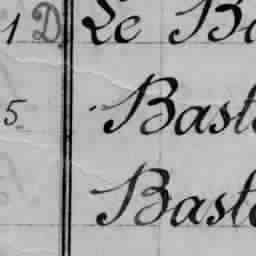 1 D Le Ba
5 Bast
Bast